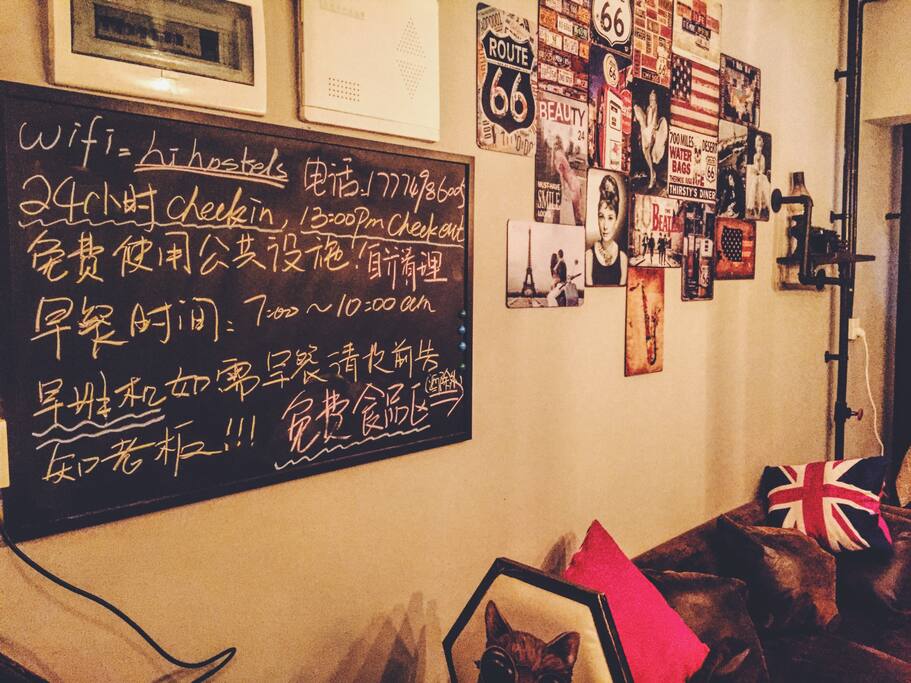 wifi = hihostels 电话:
24小时 checkin, 13:00pm Check out
免费使用公共设施! 自行清理
早餐时间: 7:00 ~ 10:00 am
早班机如需早餐请提前告
知老板!!! 免费食品区
ROUTE
66
66
BEAUTY
MUST-HAVE
SMILE
24
700 MILES DESERT
WATER
BAGS
THIRSTY'S DINER
THE
BEATLES